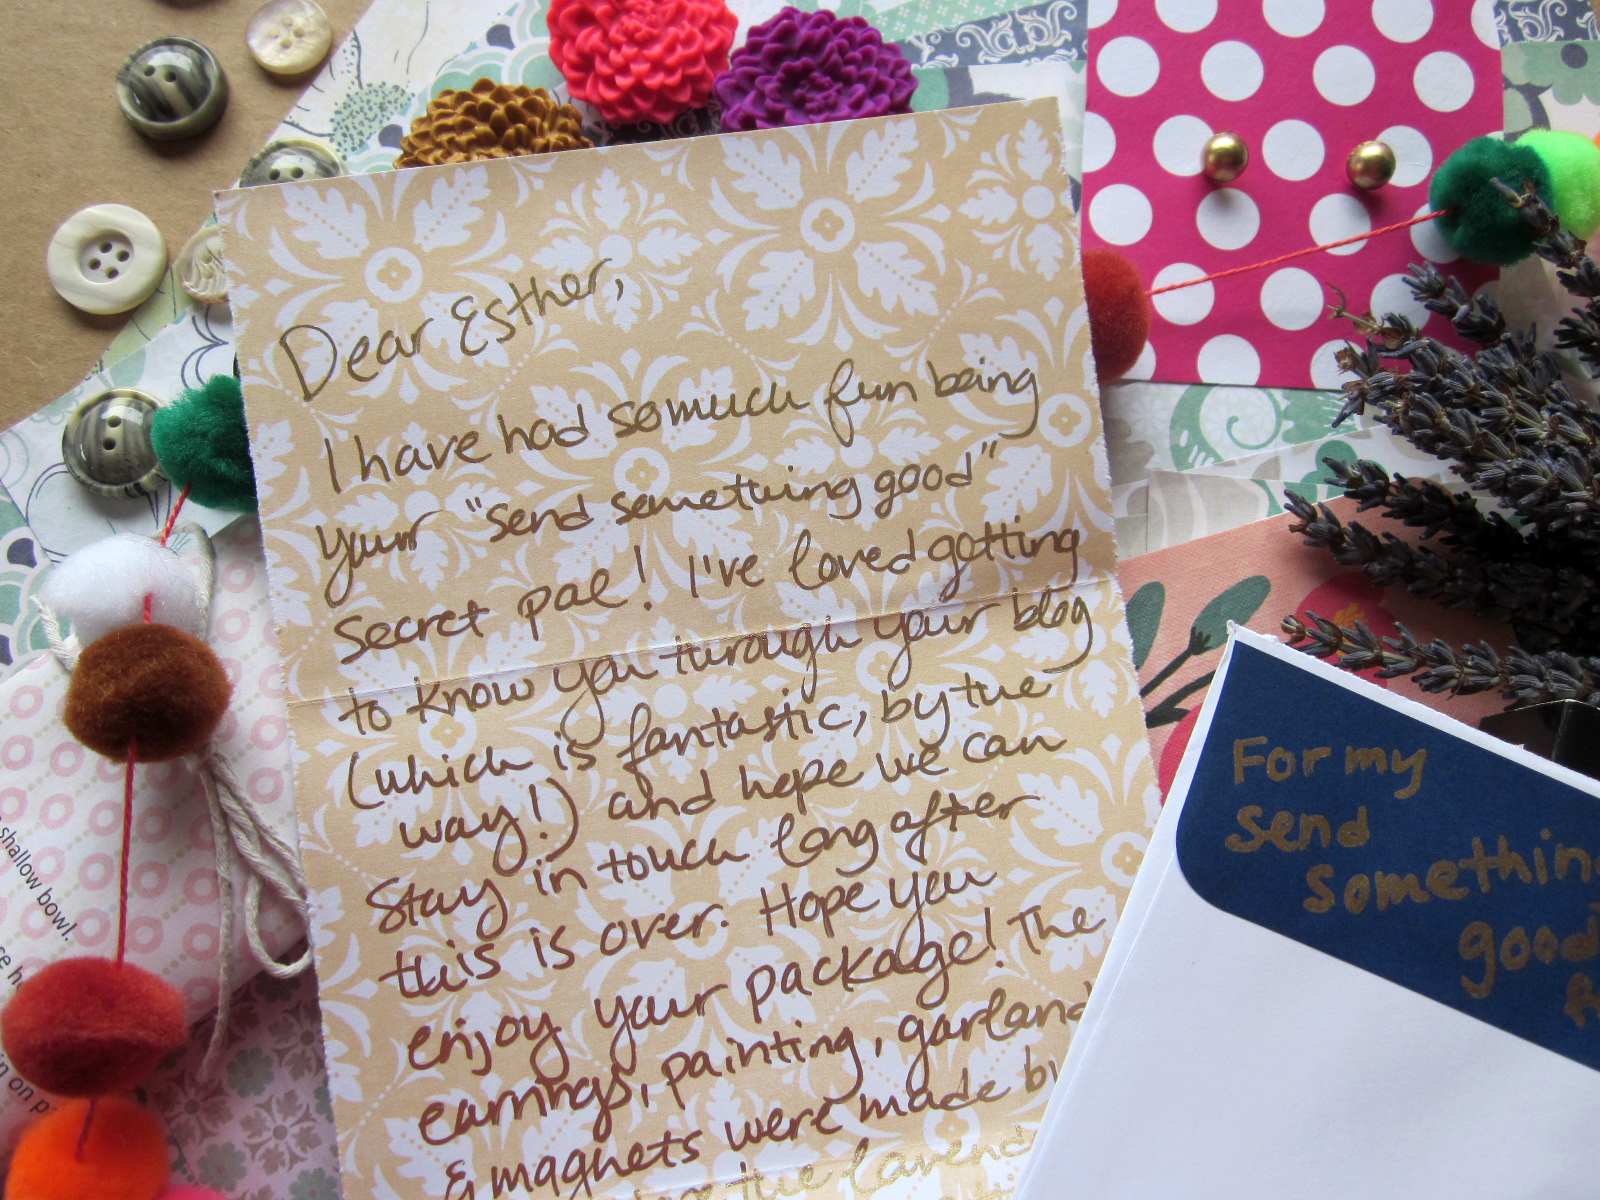 Dear Esther,
I have had so much fun being
your "send something good"
secret pal! I've loved getting
to know you through your blog
(which is fantastic, by the
way!) and hope we can
stay in touch long after
this is over. Hope you
enjoy your package! The
earrings, painting, garland
& magnets were made by
the lavend
For my
send
something
good
shallow bowl.